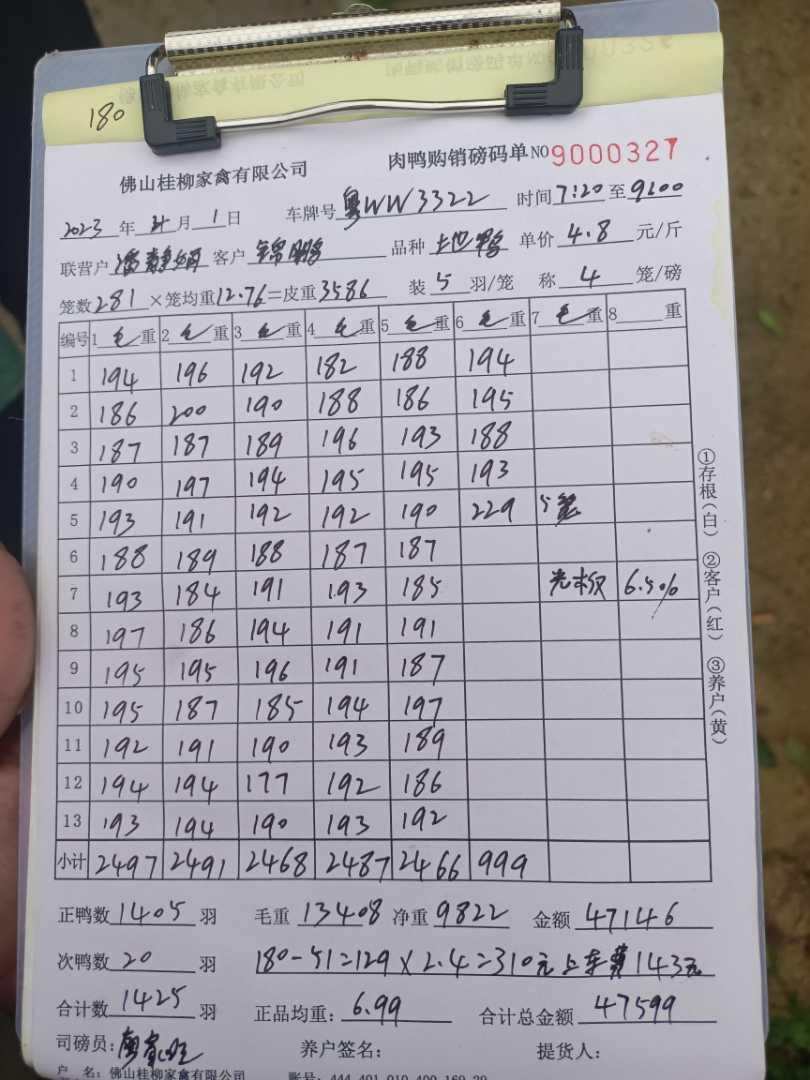 180
佛山桂柳家禽有限公司 肉鸭购销磅码单 NO 9000327
2023 年 4 月 1 日 车牌号 粤WW3322 时间 7:20 至 9:00
联营户 潘静娟 客户 锦鹏 品种 土地鸭 单价 4.8 元/斤
笼数 281 ×笼均重 12.76 =皮重 3586 装 5 羽/笼 称 4 笼/磅
编号 1 毛 重 2 毛 重 3 毛 重 4 毛 重 5 毛 重 6 毛 重 7 毛 重 8 重
1 194 196 192 182 188 194
2 186 200 190 188 186 195
3 187 187 189 196 193 188
4 190 197 194 195 195 193
5 193 191 192 192 190 229 5笼
6 188 189 188 187 187
7 193 184 191 193 185 6.5%
8 197 186 194 191 191
9 195 195 196 191 187
10 195 187 185 194 197
11 192 191 190 193 189
12 194 194 177 192 186
13 193 194 190 193 192
小计 2497 2491 2468 2487 2466 999
①存根(白) ②客户(红) ③养户(黄)
正鸭数 1405 羽 毛重 13408 净重 9822 金额 47146
次鸭数 20 羽 180-51=129×2.4=310元 上车费143元
合计数 1425 羽 正品均重: 6.99 合计总金额 47599
司磅员: 养户签名: 提货人:
户 名: 佛山桂柳家禽有限公司 账号: 444 401 010 400 169 29